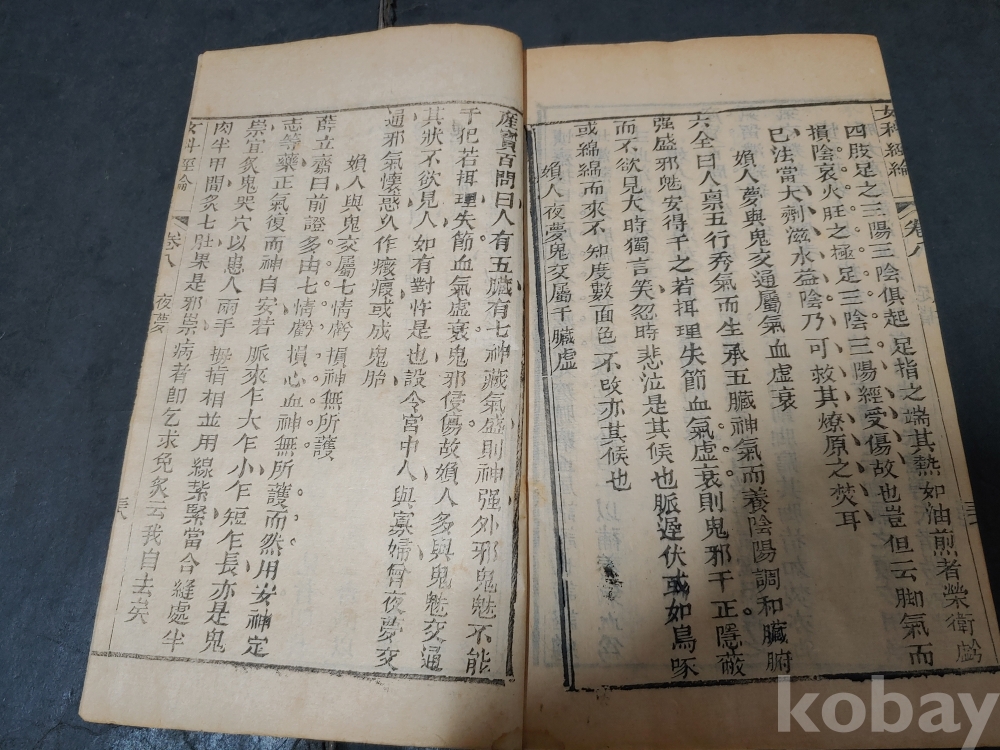 女科經綸 卷八
四肢足之三陽三陰俱起足指之端其熱如油煎者榮衛虧
損陰衰火旺之極足三陰三陽經受傷故也豈但云脚氣而
已法當大劑滋水益陰乃可救其燎原之焚耳
婦人夢與鬼交通屬氣血虛衰
大全曰人禀五行秀氣而生承五臟神氣而養陰陽調和臟腑
强盛邪魅安得干之若摂理失節血氣虛衰則鬼邪干正隱蔽
而不欲見大時獨言笑忽時悲泣是其候也脈遲伏或如鳥啄
或綿綿而來不知度數面色不改亦其候也
婦人夜夢鬼交屬干臟虛
產寶百問曰人有五臟有七神藏氣盛則神强外邪鬼魅不能
干犯若摂理失節血氣虛衰鬼邪侵傷故婦人多與鬼魅交通
其狀不欲見人如有對忤是也設令宮中人與寡婦曾夜夢交
通邪氣懷惑久作癥瘕或成鬼胎
婦人與鬼交屬七情虧損神無所護
薛立齋曰前證多由七情虧損心血神無所護而然用安神定
志等藥正氣復而神自安若脈來乍大乍小乍短乍長亦是鬼
祟宜灸鬼哭穴以患人兩手拇指相並用線紮緊當合縫處半
肉半甲間灸七壯果是邪祟病者卽乞求免灸云我自去矣
女科經綸 卷八 夜夢
kobay